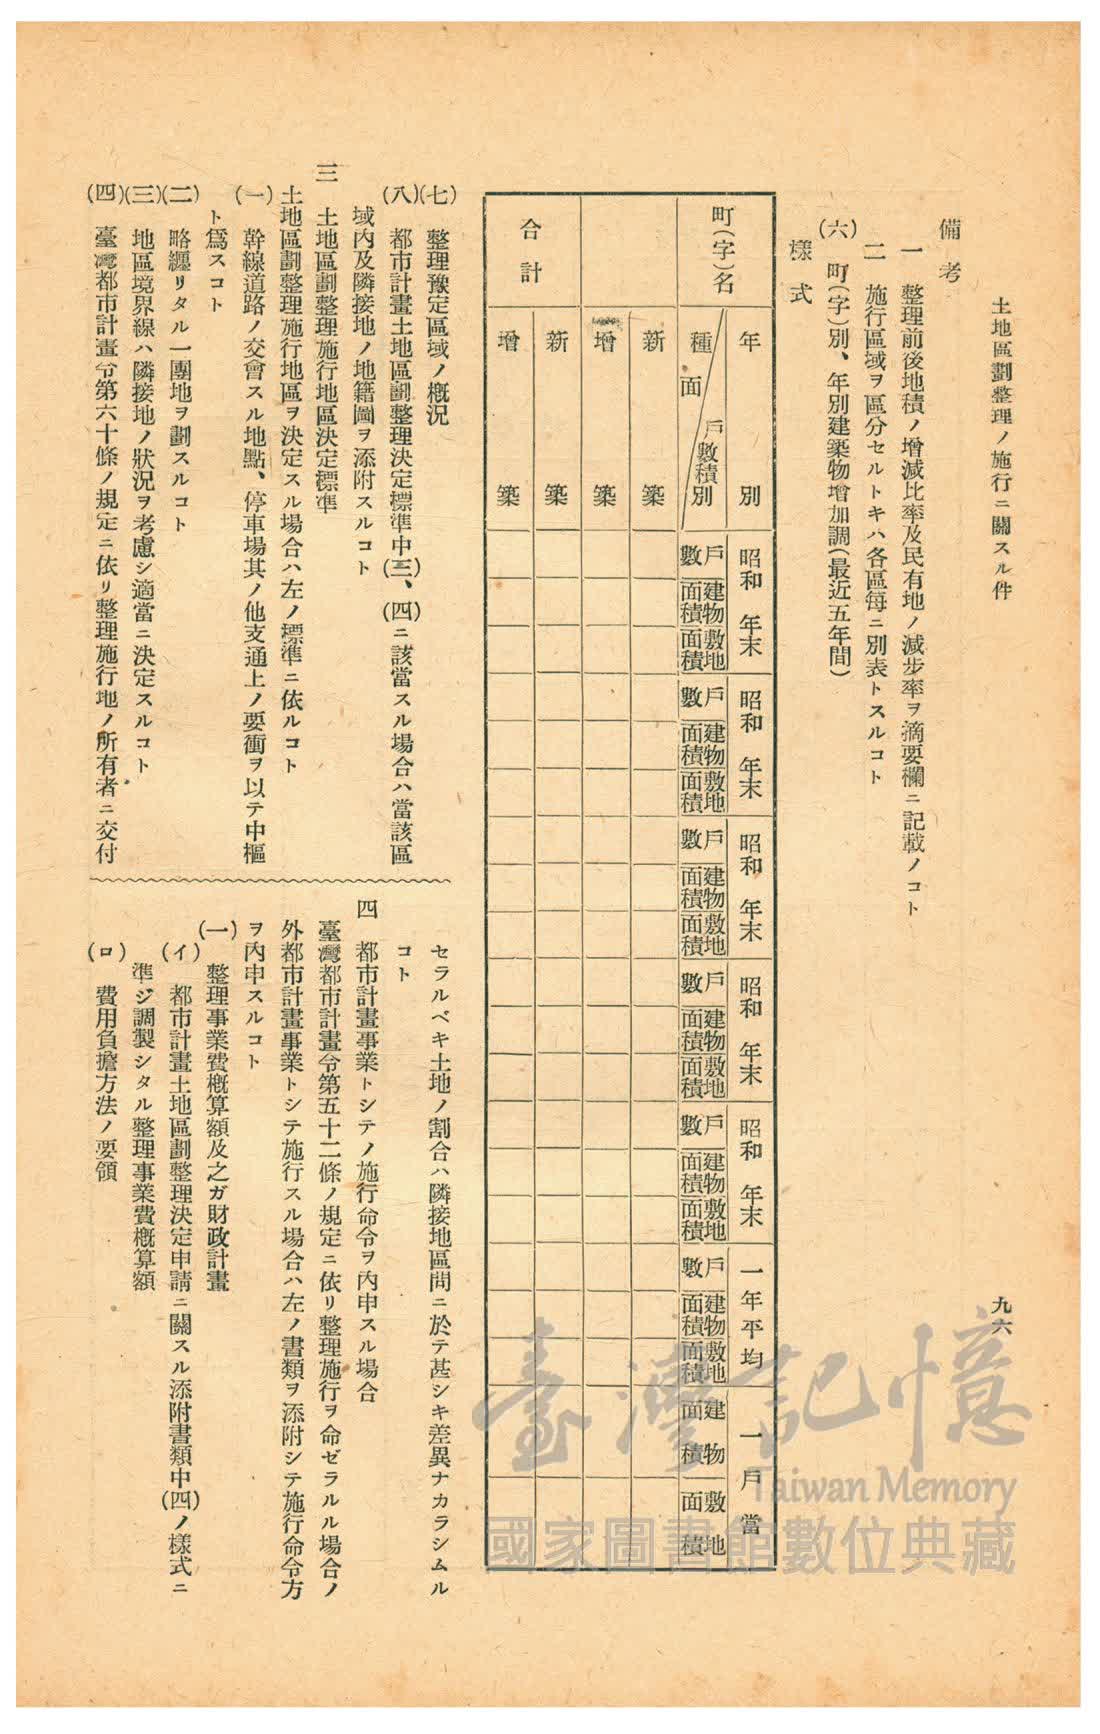 土地區劃整理ノ施行ニ關スル件
九六
備考
一 整理前後地積ノ增減比率及民有地ノ減步率ヲ摘要欄ニ記載ノコト
二 施行區域ヲ區分セルトキハ各區每ニ別表トスルコト
(六) 町(字)別、年別建築物增加調(最近五年間)
樣式
町(字)名
年別
戶數積別
種面
昭和 年末
戶數
建物面積
敷地面積
昭和 年末
戶數
建物面積
敷地面積
昭和 年末
戶數
建物面積
敷地面積
昭和 年末
戶數
建物面積
敷地面積
昭和 年末
戶數
建物面積
敷地面積
一年平均
戶數
建物面積
敷地面積
一戶當
建物面積
敷地面積
新築
增築
合計
新築
增築
(七) 整理豫定區域ノ槪況
(八) 都市計畫土地區劃整理決定標準中(三)、(四)ニ該當スル場合ハ當該區
域內及隣接地ノ地籍圖ヲ添附スルコト
三 土地區劃整理施行地區決定標準
土地區劃整理施行地區ヲ決定スル場合ハ左ノ標準ニ依ルコト
(一) 幹線道路ノ交會スル地點、停車場其ノ他支通上ノ要衝ヲ以テ中樞
ト爲スコト
(二) 略纒リタル一團地ヲ劃スルコト
(三) 地區境界線ハ隣接地ノ狀況ヲ考慮シ適當ニ決定スルコト
(四) 臺灣都市計畫令第六十條ノ規定ニ依リ整理施行地ノ所有者ニ交付
セラルベキ土地ノ割合ハ隣接地區間ニ於テ甚シキ差異ナカラシムル
コト
四 都市計畫事業トシテノ施行命令ヲ內申スル場合
臺灣都市計畫令第五十二條ノ規定ニ依リ整理施行ヲ命ゼラルル場合ノ
外都市計畫事業トシテ施行スル場合ハ左ノ書類ヲ添附シテ施行命令方
ヲ內申スルコト
(一) 整理事業費槪算額及之ガ財政計畫
(イ) 都市計畫土地區劃整理決定申請ニ關スル添附書類中(四)ノ樣式ニ
準ジ調製シタル整理事業費槪算額
(ロ) 費用負擔方法ノ要領
臺灣記憶
Taiwan Memory
國家圖書館數位典藏